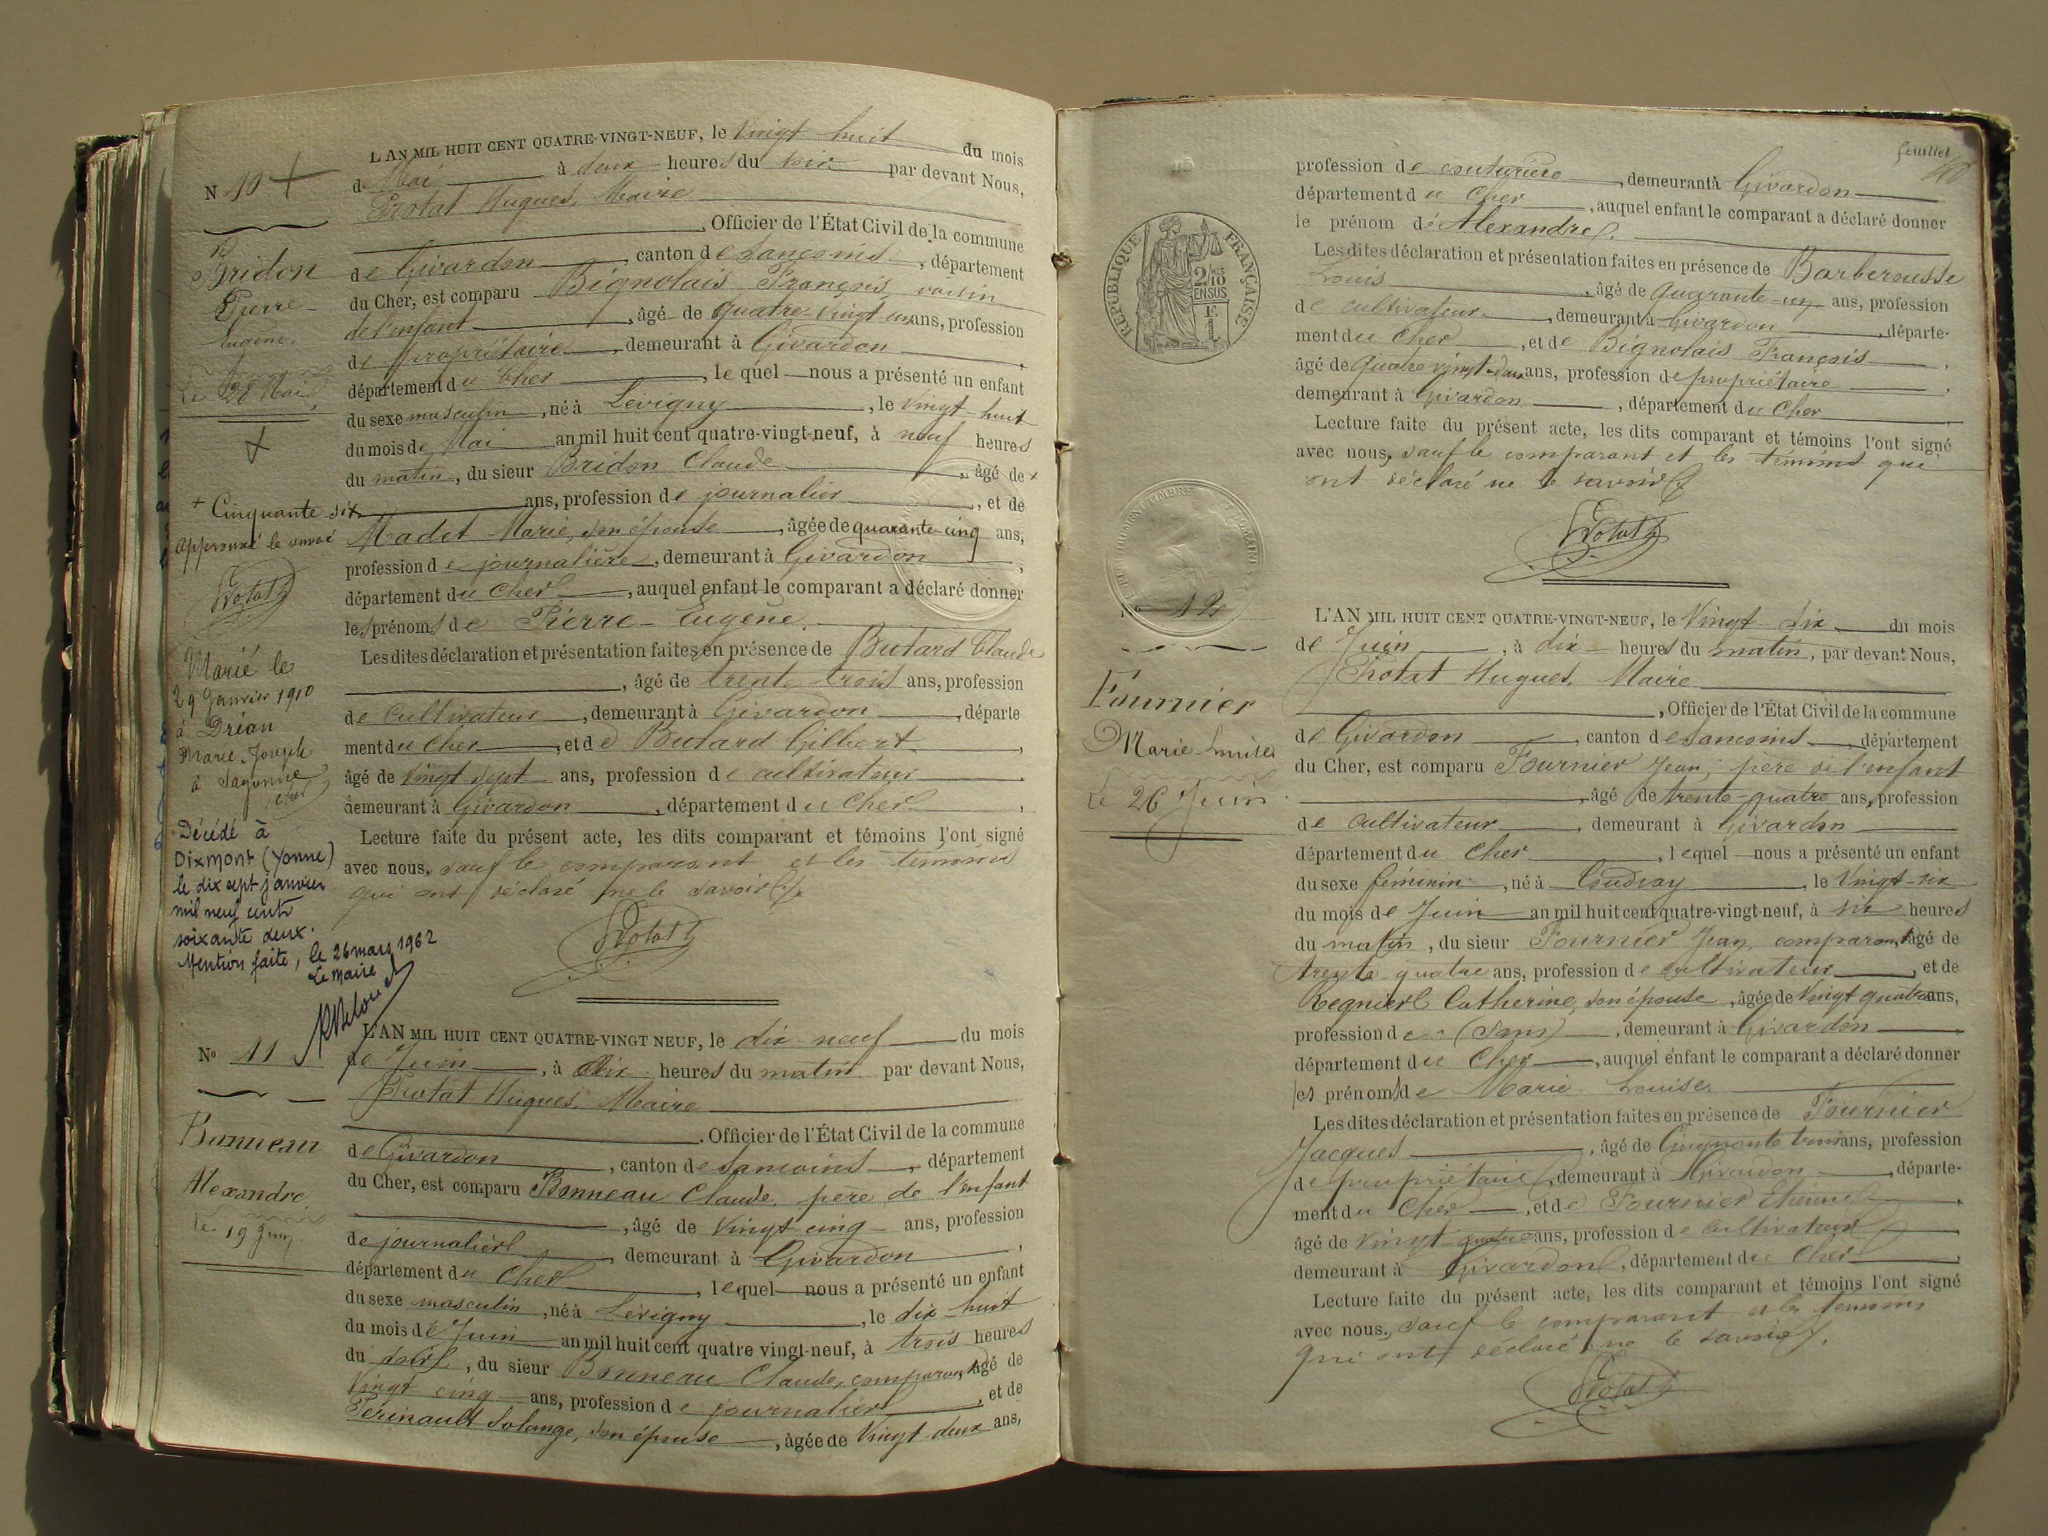 L'AN MIL HUIT CENT QUATRE-VINGT-NEUF, le Vingt huit du mois
N 10
de Mai à deux heures du soir par devant Nous,
Protat Hugues, Maire
, Officier de l'État Civil de la commune
de Givardon, canton de Sancoins, département
du Cher, est comparu Bignolais François, voisin
de l'enfant, âgé de quatre-vingt un ans, profession
de propriétaire, demeurant à Givardon
département du Cher, lequel nous a présenté un enfant
du sexe masculin, né à Lévigny, le vingt-huit
du mois de Mai an mil huit cent quatre-vingt-neuf, à neuf heures
du matin, du sieur Bridon Claude, âgé de +
ans, profession de journalier, et de
Madet Marie, son épouse, âgée de quarante-cinq ans,
profession de journalière, demeurant à Givardon,
département du Cher, auquel enfant le comparant a déclaré donner
les prénoms de Pierre-Eugène.
Les dites déclaration et présentation faites en présence de Butard Claude
, âgé de trente trois ans, profession
de cultivateur, demeurant à Givardon, départe
ment du Cher, et de Butard Gilbert,
âgé de vingt sept ans, profession de cultivateur
demeurant à Givardon, département du Cher,
Lecture faite du présent acte, les dits comparant et témoins l'ont signé
avec nous, sauf le comparant et les témoins
qui ont déclaré ne le savoir.
Protat
Bridon
Pierre-
Eugène
Le 28 Mai
+ Cinquante six
approuvé le renvoi
Protat
Marié le
29 Janvier 1910
à Dréan
Marie Joseph
à Sagonne
Cher
Décédé à
Dixmont (Yonne)
le dix sept janvier
mil neuf cent
soixante deux.
Mention faite, le 26 mars 1962
Le maire
No 11
L'AN MIL HUIT CENT QUATRE-VINGT NEUF, le dix-neuf du mois
de Juin, à dix heures du matin par devant Nous,
Protat Hugues, Maire
, Officier de l'État Civil de la commune
de Givardon, canton de Sancoins, département
du Cher, est comparu Bonneau Claude, père de l'enfant
, âgé de vingt cinq ans, profession
de journalier, demeurant à Givardon,
département du Cher, lequel nous a présenté un enfant
du sexe masculin, né à Lévigny, le dix-huit
du mois de Juin an mil huit cent quatre vingt-neuf, à trois heures
du soir, du sieur Bonneau Claude, comparant âgé de
vingt cinq ans, profession de journalier, et de
Périnault Solange, son épouse, âgée de vingt-deux ans,
Bonneau
Alexandre
le 19 Juin
feuillet
profession de couturière, demeurant à Givardon
département du Cher, auquel enfant le comparant a déclaré donner
le prénom de Alexandre.
Les dites déclaration et présentation faites en présence de Barberousse
Louis, âgé de quarante-un ans, profession
de cultivateur, demeurant à Givardon, départe-
ment du Cher, et de Bignolais François,
âgé de quatre vingt-deux ans, profession de propriétaire,
demeurant à Givardon, département du Cher
Lecture faite du présent acte, les dits comparant et témoins l'ont signé
avec nous, sauf le comparant et les témoins qui
ont déclaré ne le savoir
Protat
RÉPUBLIQUE FRANÇAISE
2/10
EN SUS
No 12
Fournier
Marie-Louise
Le 26 Juin
L'AN MIL HUIT CENT QUATRE-VINGT-NEUF, le Vingt-six du mois
de Juin, à dix heures du matin, par devant Nous,
Protat Hugues, Maire
, Officier de l'État Civil de la commune
de Givardon, canton de Sancoins, département
du Cher, est comparu Fournier Jean, père de l'enfant
, âgé de trente-quatre ans, profession
de cultivateur, demeurant à Givardon
département du Cher, lequel nous a présenté un enfant
du sexe féminin, né à Coudray, le vingt-six
du mois de Juin an mil huit cent quatre-vingt-neuf, à six heures
du matin, du sieur Fournier Jean, comparant âgé de
trente quatre ans, profession de cultivateur, et de
Regnier Catherine, son épouse, âgée de vingt quatre ans,
profession de (sans), demeurant à Givardon
département du Cher, auquel enfant le comparant a déclaré donner
les prénoms de Marie Louise.
Les dites déclaration et présentation faites en présence de Fournier
Jacques, âgé de cinquante trois ans, profession
de propriétaire, demeurant à Givardon, départe-
ment du Cher, et de Fournier Etienne,
âgé de vingt quatre ans, profession de cultivateur
demeurant à Givardon, département du Cher
Lecture faite du présent acte, les dits comparant et témoins l'ont signé
avec nous, sauf le comparant et les témoins
qui ont déclaré ne le savoir.
Protat